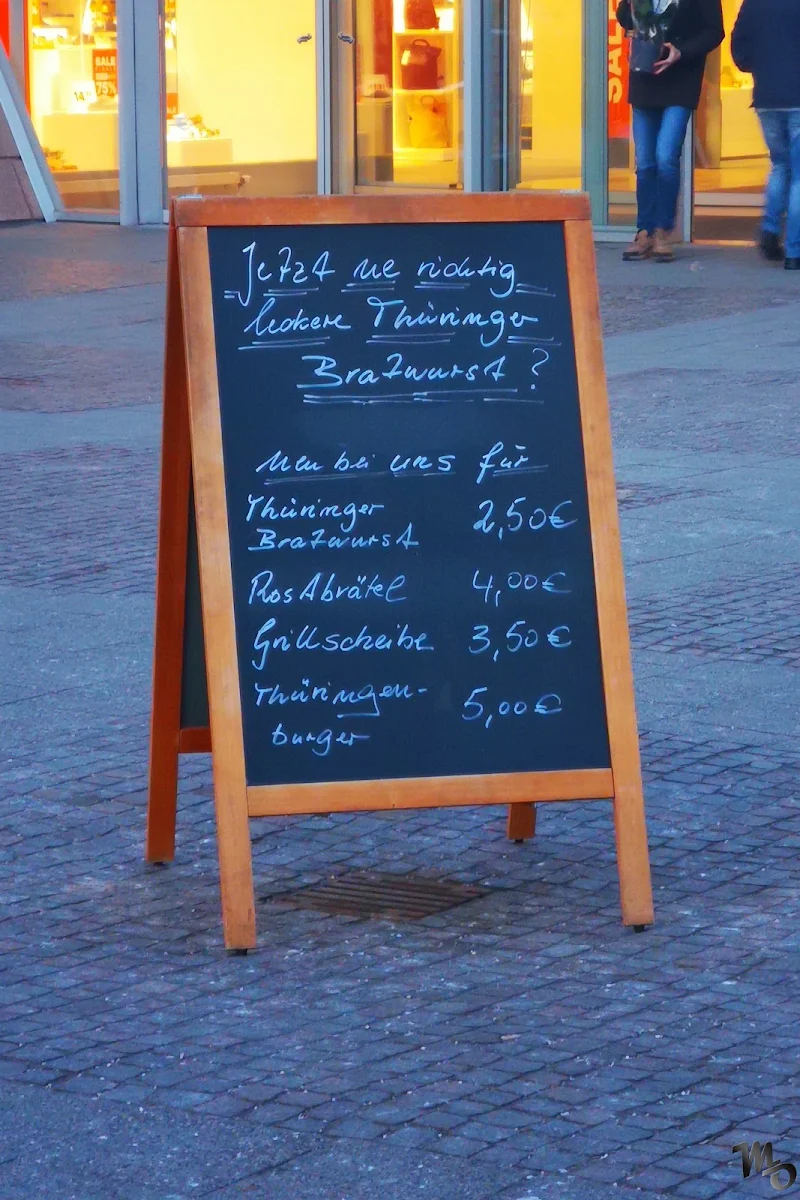 SALE
75%
14
SALE
Jetzt ne richtig
leckere Thüringer
Bratwurst?
Neu bei uns für
Thüringer
Bratwurst 2,50€
Rostbrätel 4,00€
Grillscheibe 3,50€
Thüringen-
burger 5,00€
MO